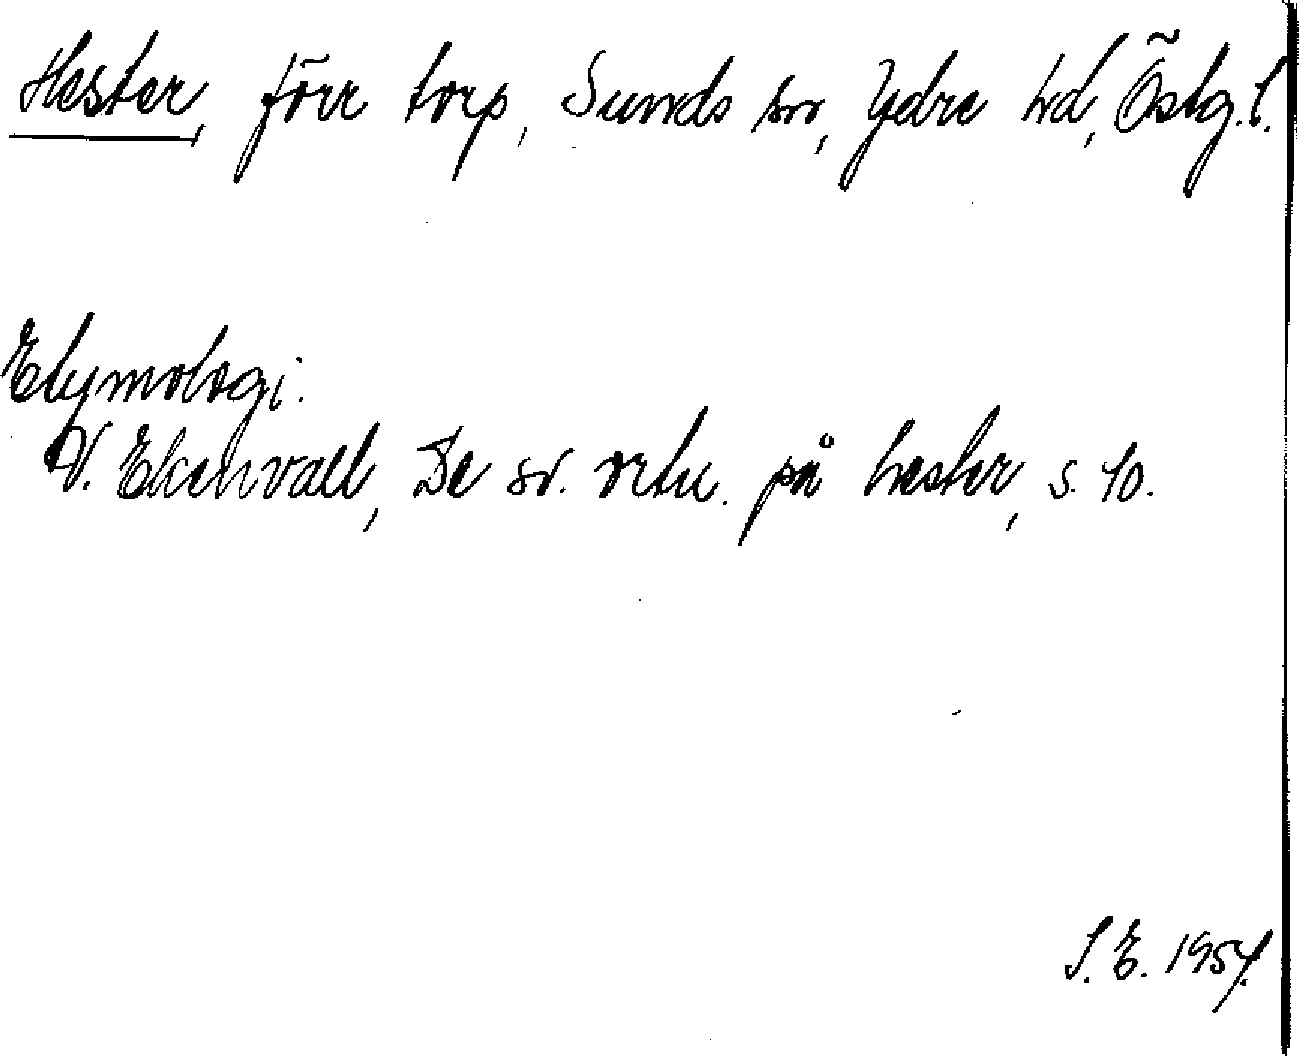 Hester, förr torp, Sunds sn, Ydre hd, Östg. l.
Etymologi.
V. Ekenvall, De sv. ortn. på hester, s. 10.
S. E. 1954.